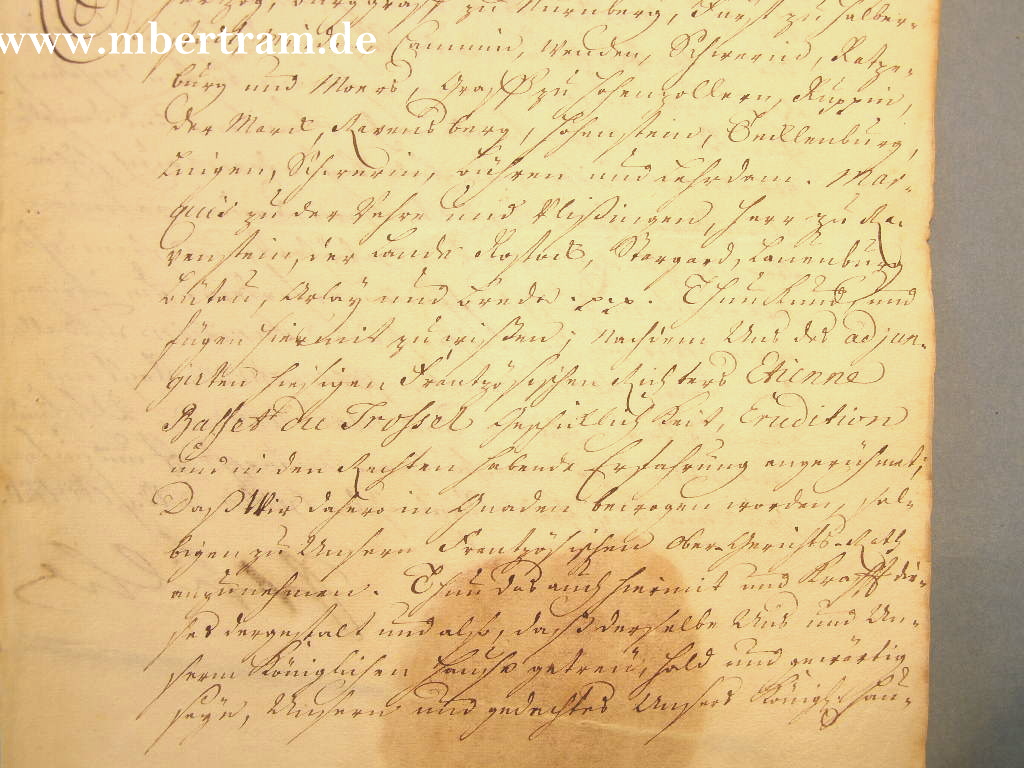 hertzog, Burggraff zu Nürnberg, Fürst zu Halber-
www.mbertram.de
Minden, Cammin, Wenden, Schwerin, Ratze-
burg und Moers, Graff zu Hohenzollern, Ruppin,
der Marck, Ravensberg, Hohenstein, Tecklenburg,
Lingen, Schwerin, Bühren und Lehrdam. Mar-
quis zu der Vehre und Vlißingen, Herr zu Ra-
venstein, der Lande Rostock, Stargard, Lauenburg
Bütau, Arlay und Breda p.p.p. Thun kund und
fügen hiermit zu wißen; Nachdem Uns des adjun-
girten hiesigen Frantzösischen Richters Etienne
Basset du Trossel Geschicklichkeit, Erudition
und in den Rechten habende Erfahrung angerühmet;
Daß Wir dahero in Gnaden bewogen worden, sel-
bigen zu Unsern Frantzösischen Ober-Gerichts-Rath
anzunehmen. Thun das auch hiermit und Krafft die-
ses dergestalt und also, daß derselbe Uns und Un-
serm Königlichen Hause getreu, hold und gewärtig
seyn, Unsern und gedachtes Unsers Königl. Hau-